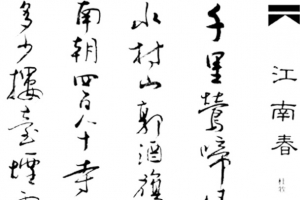 江南春
杜牧
千里鶯啼
水村山郭酒旗
南朝四百八十寺
多少樓臺煙